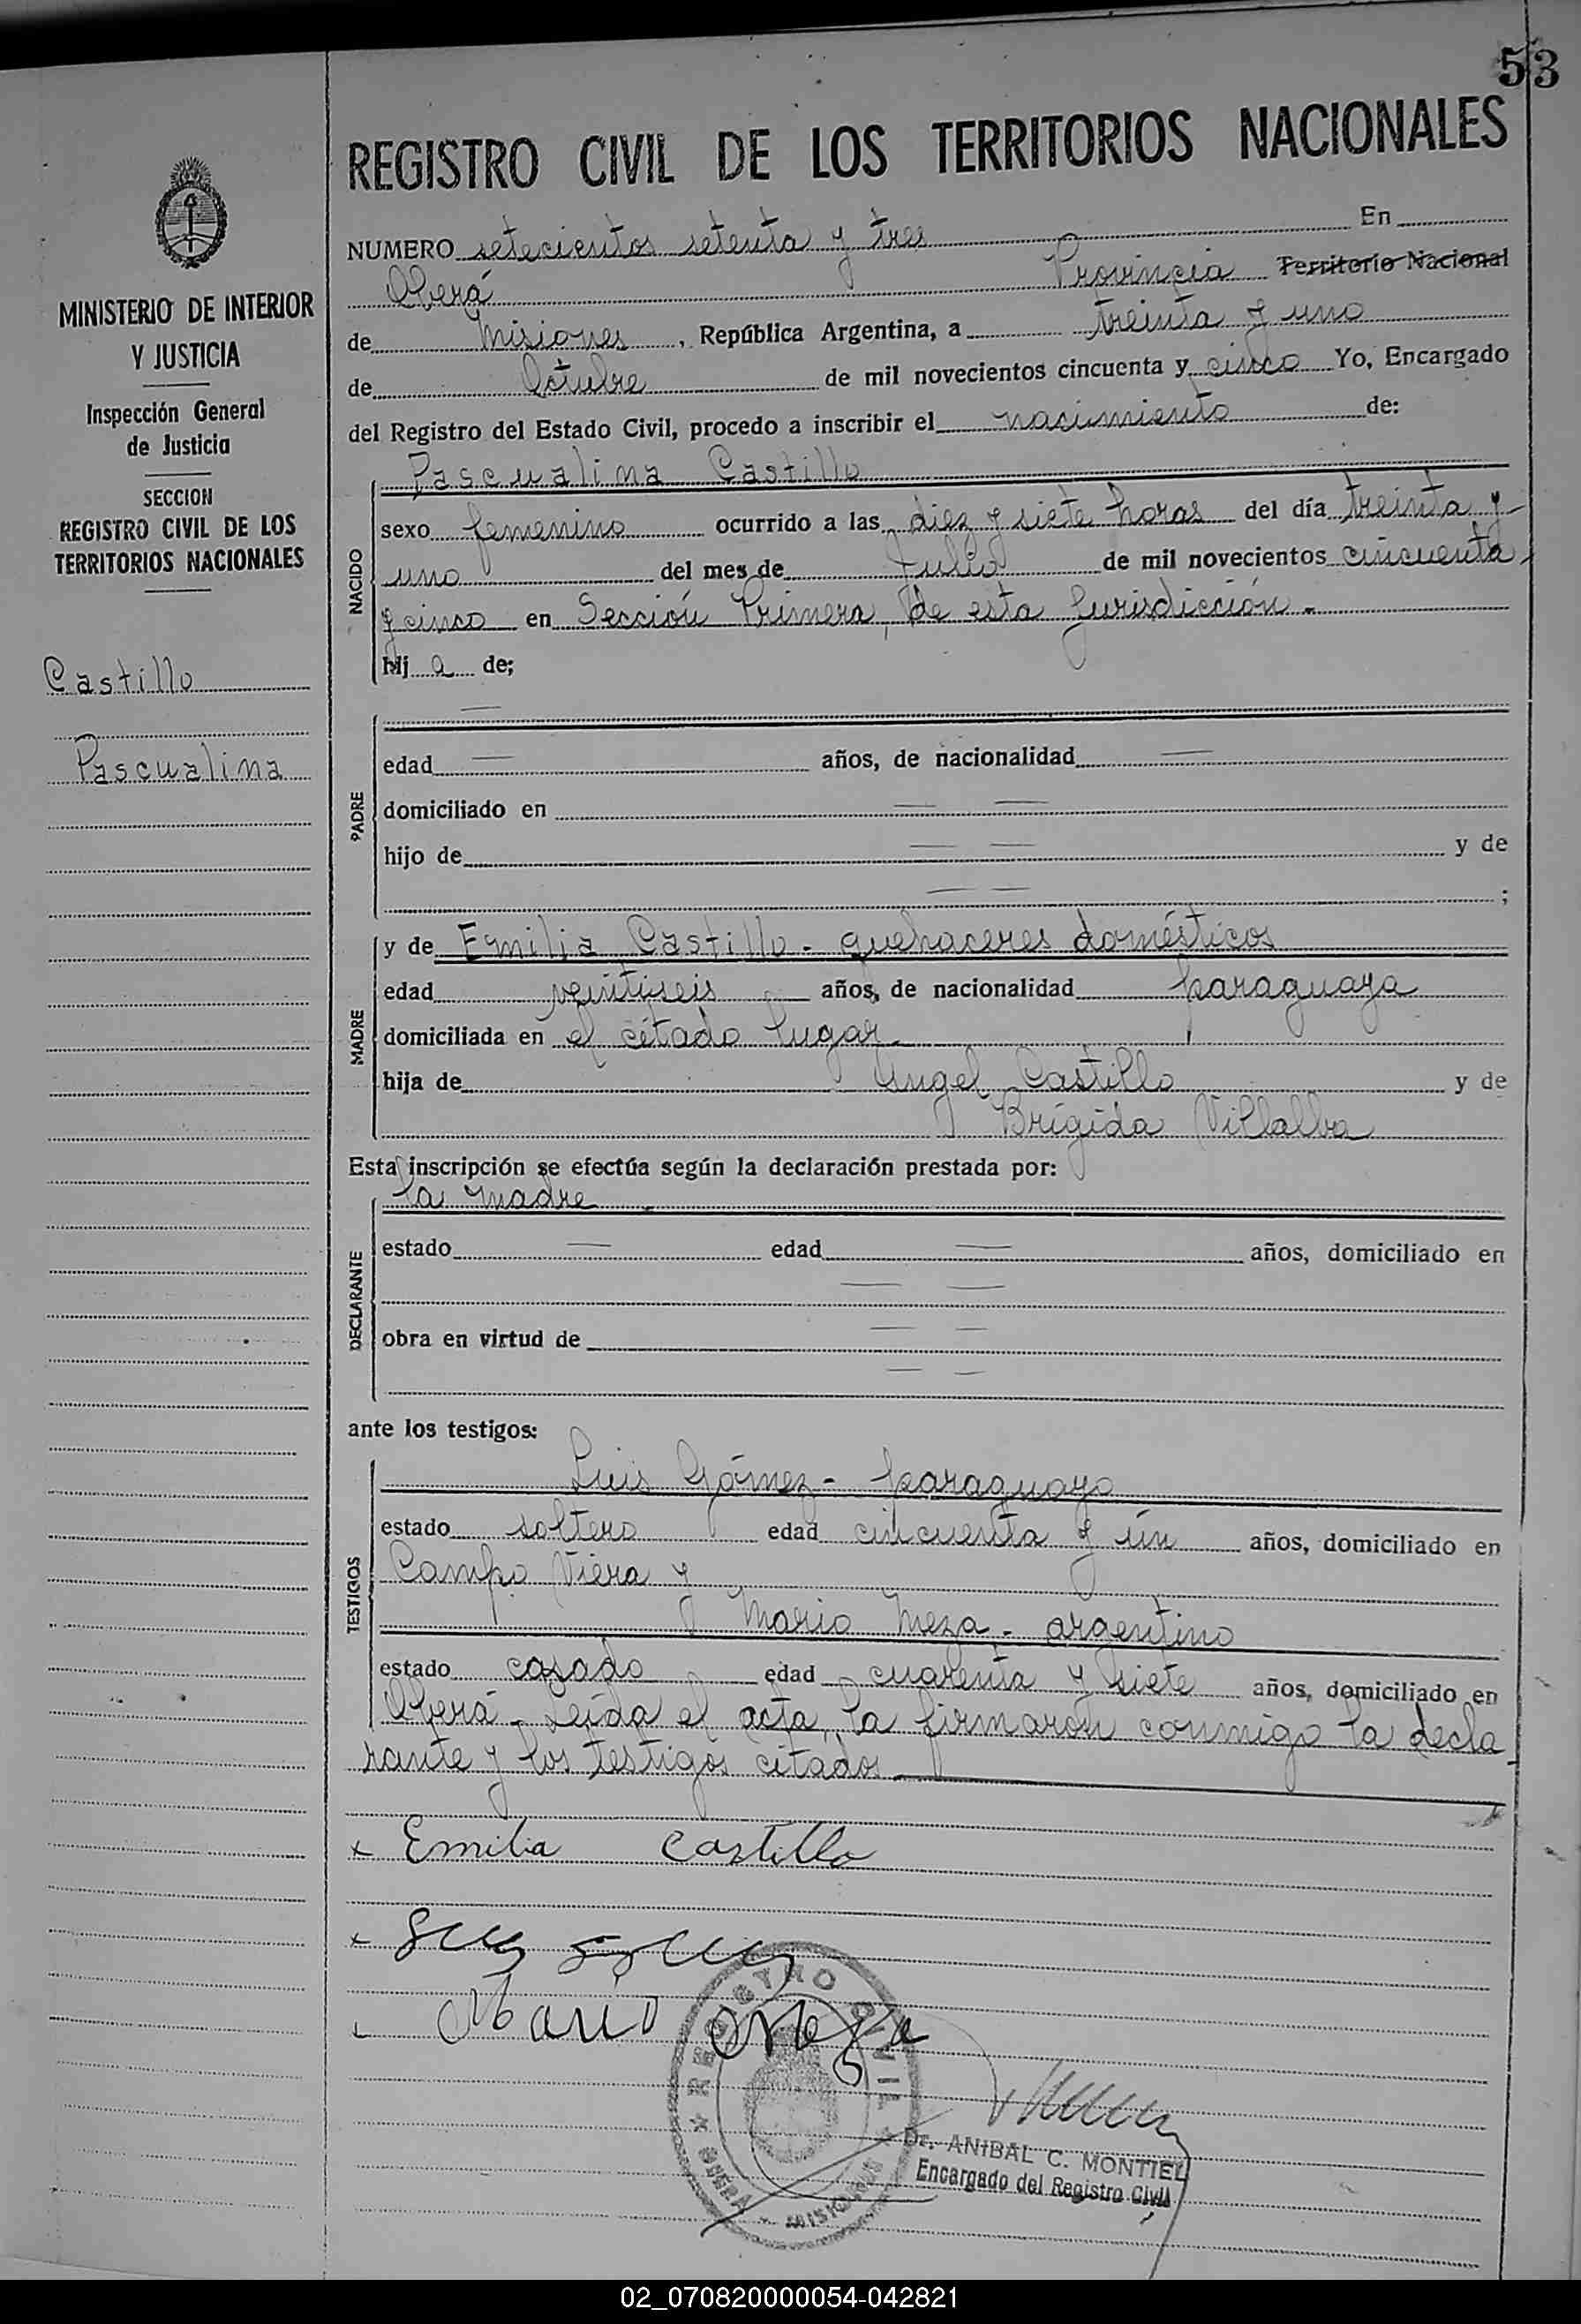 53
REGISTRO CIVIL DE LOS TERRITORIOS NACIONALES
MINISTERIO DE INTERIOR
Y JUSTICIA
Inspección General
de Justicia
SECCION
REGISTRO CIVIL DE LOS
TERRITORIOS NACIONALES
Castillo
Pascualina
NUMERO setecientos setenta y tres En
Oberá Provincia Territorio Nacional
de Misiones, República Argentina, a treinta y uno
de Octubre de mil novecientos cincuenta y cinco Yo, Encargado
del Registro del Estado Civil, procedo a inscribir el nacimiento de:
NACIDO
Pascualina Castillo
sexo femenino ocurrido a las diez y siete horas del día treinta y
uno del mes de Julio de mil novecientos cincuenta
y cinco en Sección Primera, de esta Jurisdicción.-
hij a de;
PADRE
—
edad — años, de nacionalidad —
domiciliado en — —
hijo de — — y de
— — ;
MADRE
y de Emilia Castillo.- quehaceres domésticos
edad veintiseis años, de nacionalidad paraguaya
domiciliada en el citado lugar.
hija de Angel Castillo y de
Brígida Villalba
Esta inscripción se efectúa según la declaración prestada por:
DECLARANTE
la madre.-
estado — edad — años, domiciliado en
— —
obra en virtud de — —
— —
ante los testigos:
TESTIGOS
Luis Gómez- paraguayo
estado soltero edad cincuenta y ún años, domiciliado en
Campo Viera y
Mario Meza.- argentino
estado casado edad cuarenta y siete años, domiciliado en
Oberá.- Leída el acta, la firmaron conmigo la decla
rante y los testigos citados.-
x Emilia Castillo
Mario
REGISTRO CIVIL
OBERA - MISIONES
Dr. ANIBAL C. MONTIEL
Encargado del Registro Civil
02_070820000054-042821